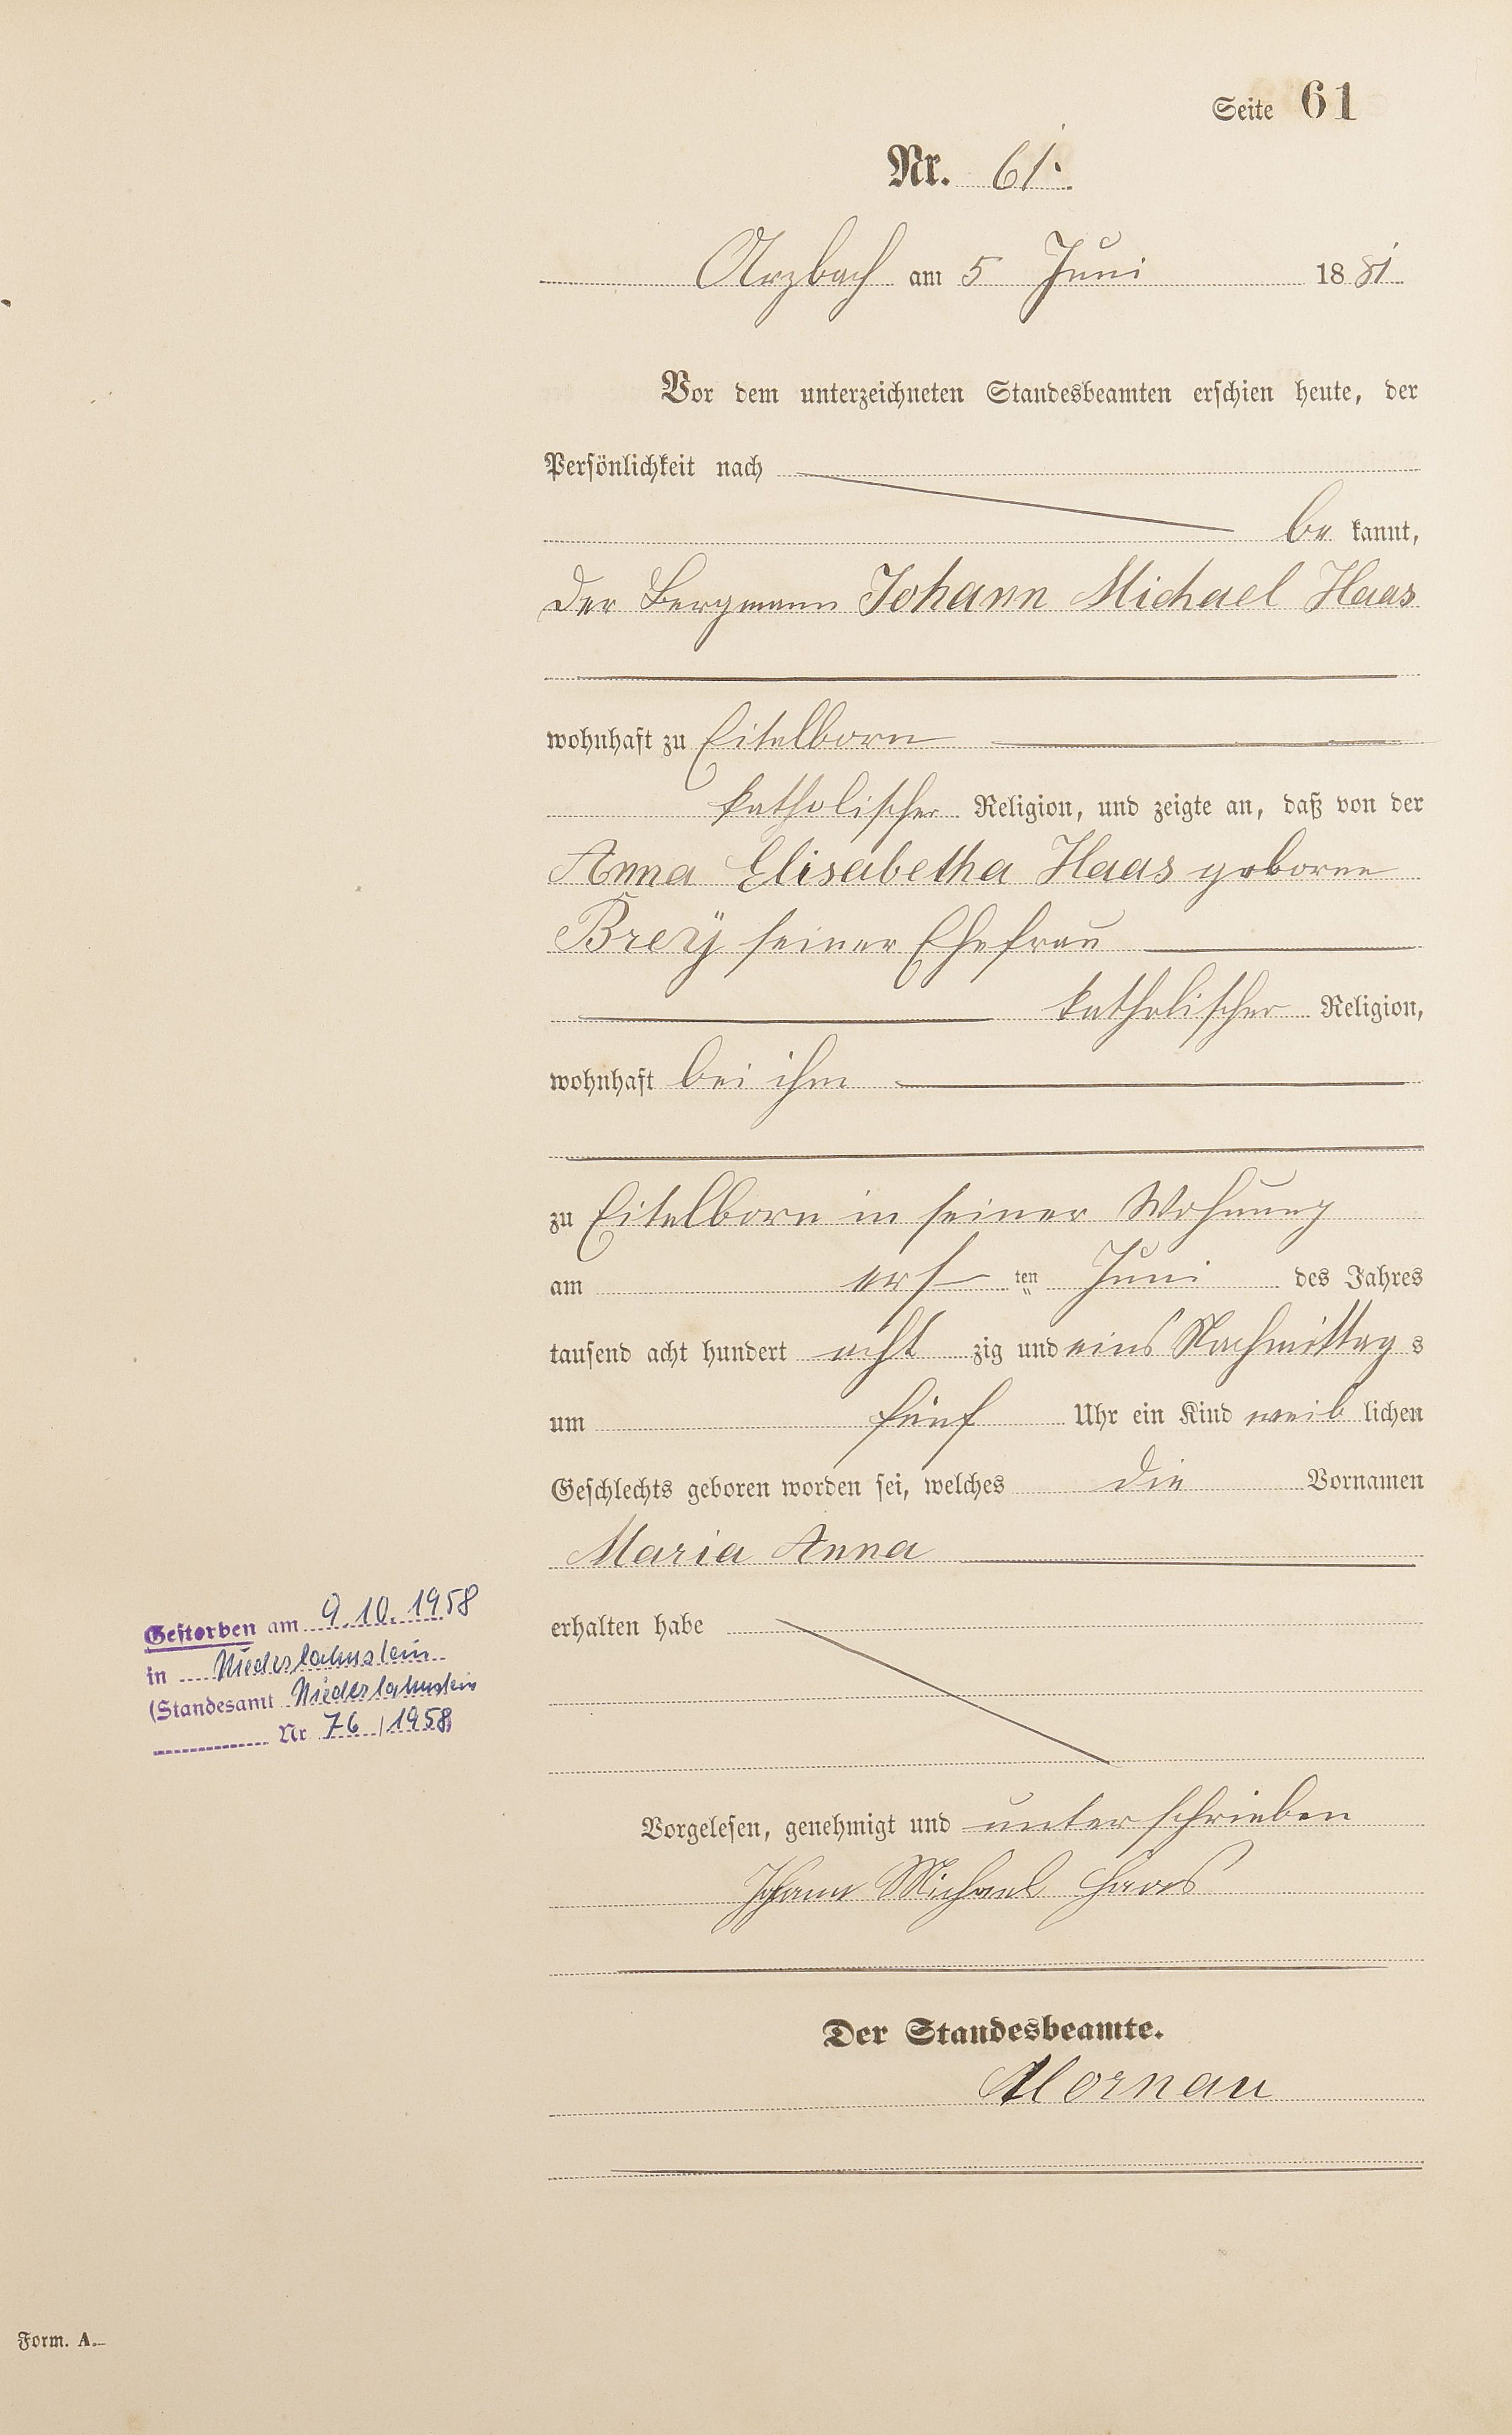 Seite 61
Nr. 61.
Arzbach am 5 Juni 1881
Vor dem unterzeichneten Standesbeamten erschien heute, der
Persönlichkeit nach
be kannt,
der Bergmann Johann Michael Haas
wohnhaft zu Eitelborn
katholischer Religion, und zeigte an, daß von der
Anna Elisabetha Haas geborne
Breÿ seiner Ehefrau
katholischer Religion,
wohnhaft bei ihm
zu Eitelborn in seiner Wohnung
am ers ten Juni des Jahres
tausend acht hundert acht zig und eins Nachmittag s
um fünf Uhr ein Kind weib lichen
Geschlechts geboren worden sei, welches die Vornamen
Maria Anna
erhalten habe
Gestorben am 9.10.1958
in Niederlahnstein
(Standesamt Niederlahnstein
Nr 76/1958)
Vorgelesen, genehmigt und unterschrieben
Johann Michael Haas
Der Standesbeamte.
Mornau
Form. A.